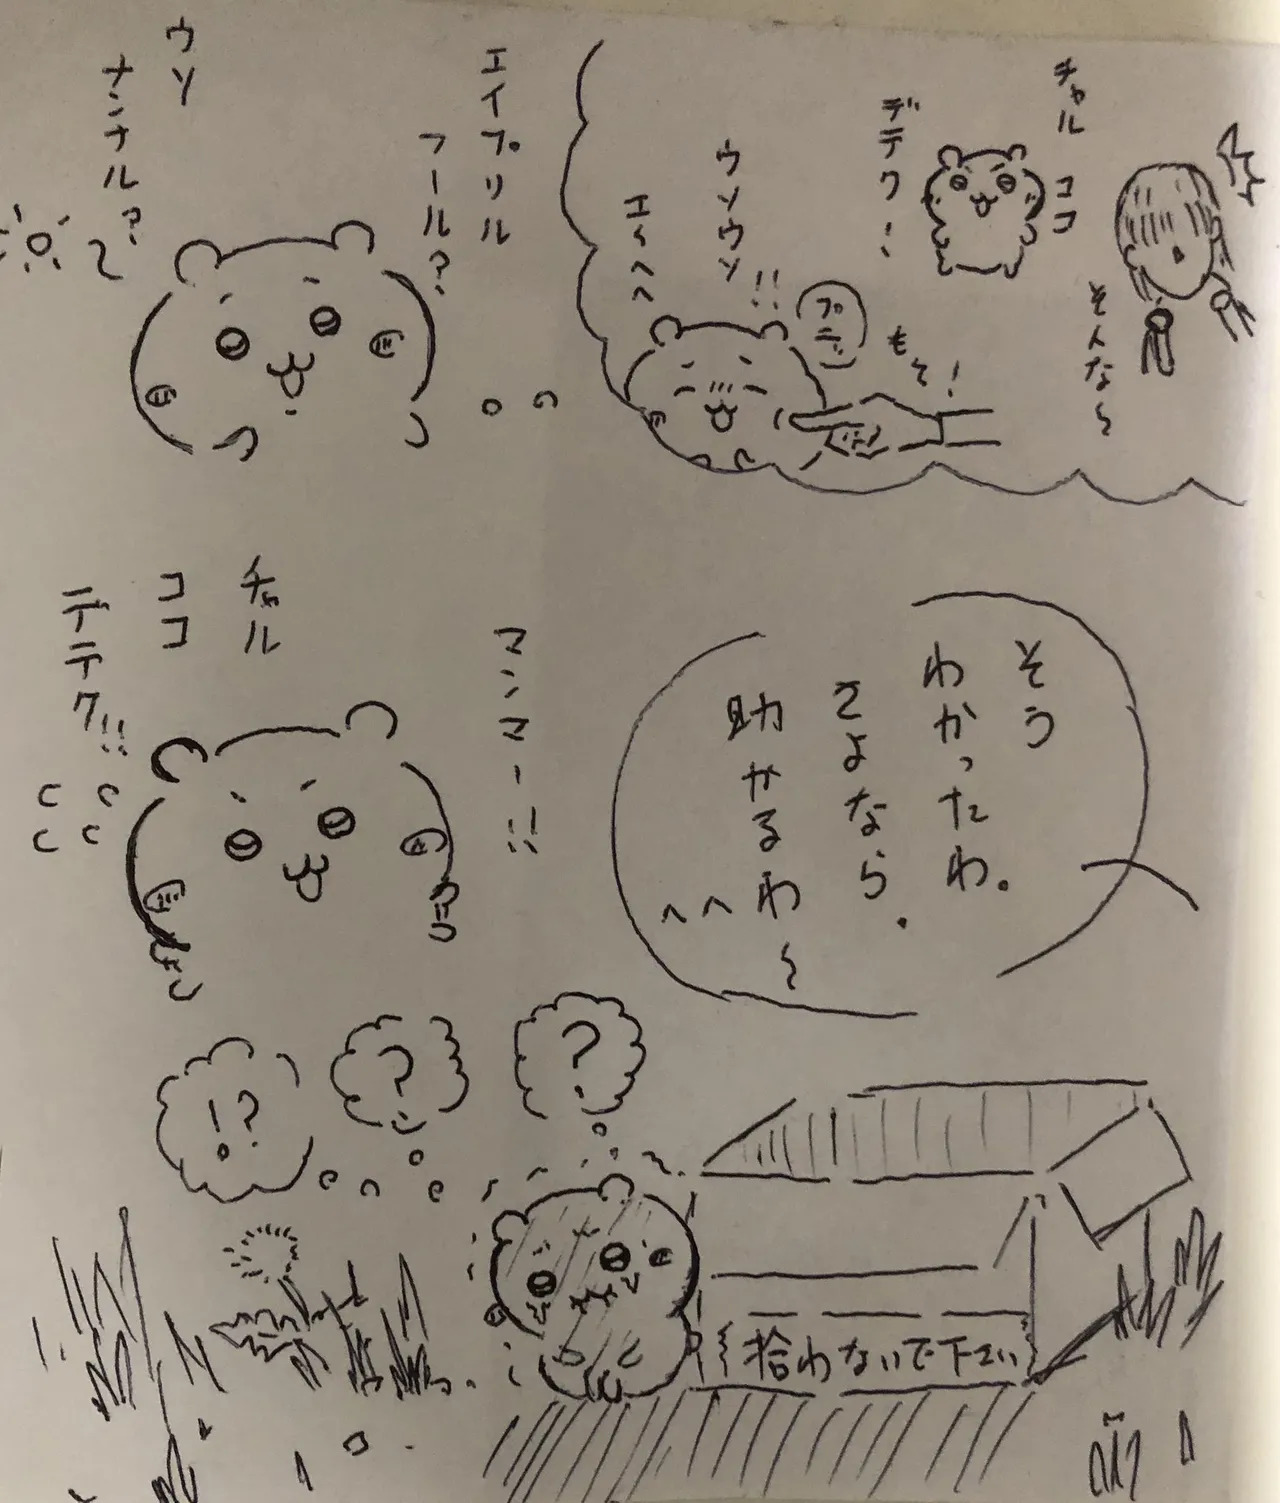 エイプリル
フール?
ウソ
ナンナル?
チャル
ココ
デテク!
そんな〜
ウソウソ!!
エヘヘ
もそ!
マンマー!!
チャル
ココ
デテク!!
そう
わかったわ。
さよなら.
助かるわ〜
へへ
?
?
!?
拾わないで下さい